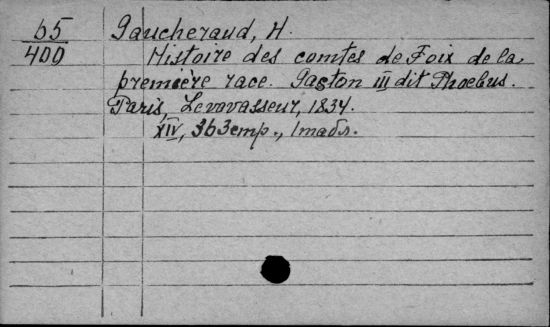 65
400
Gaucheraud, H.
Histoire des comtes de Foix de la
première race. Gaston III dit Phoebus.
Paris, Levavasseur, 1834.
XIV, 363 emp.,